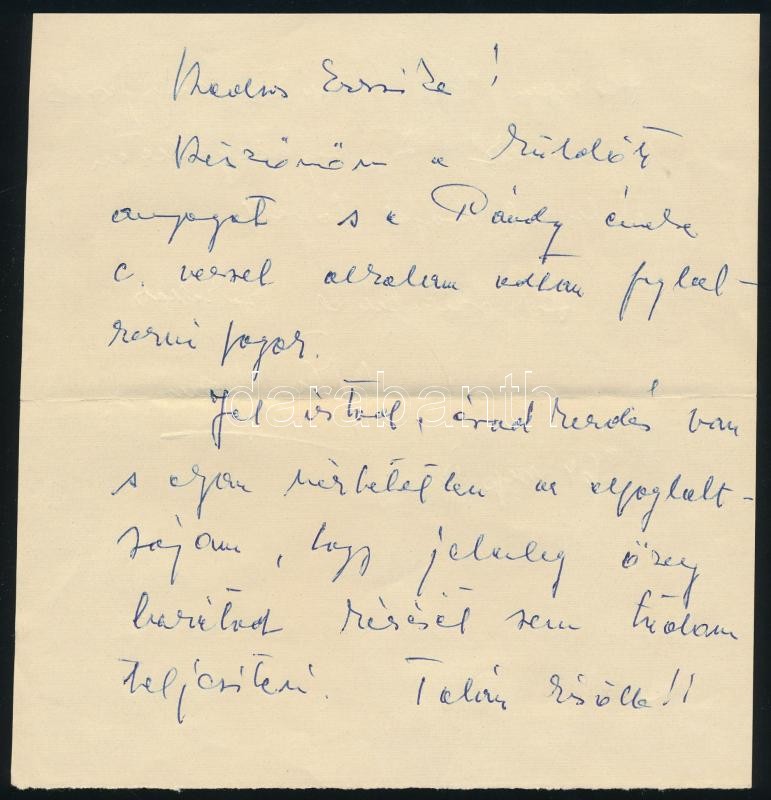 Kedves Erzsike!
Köszönöm a küldött
anyagot s a Pándy éneke
c. verset alkalom adtán foglal-
kozni fogok.
Jól írtad, évad kezdés van
s olyan mérhetetlen az elfoglalt-
ságom, hogy jelenleg öreg
barátod kérését sem tudom
teljesíteni. Talán később!!
darabanth